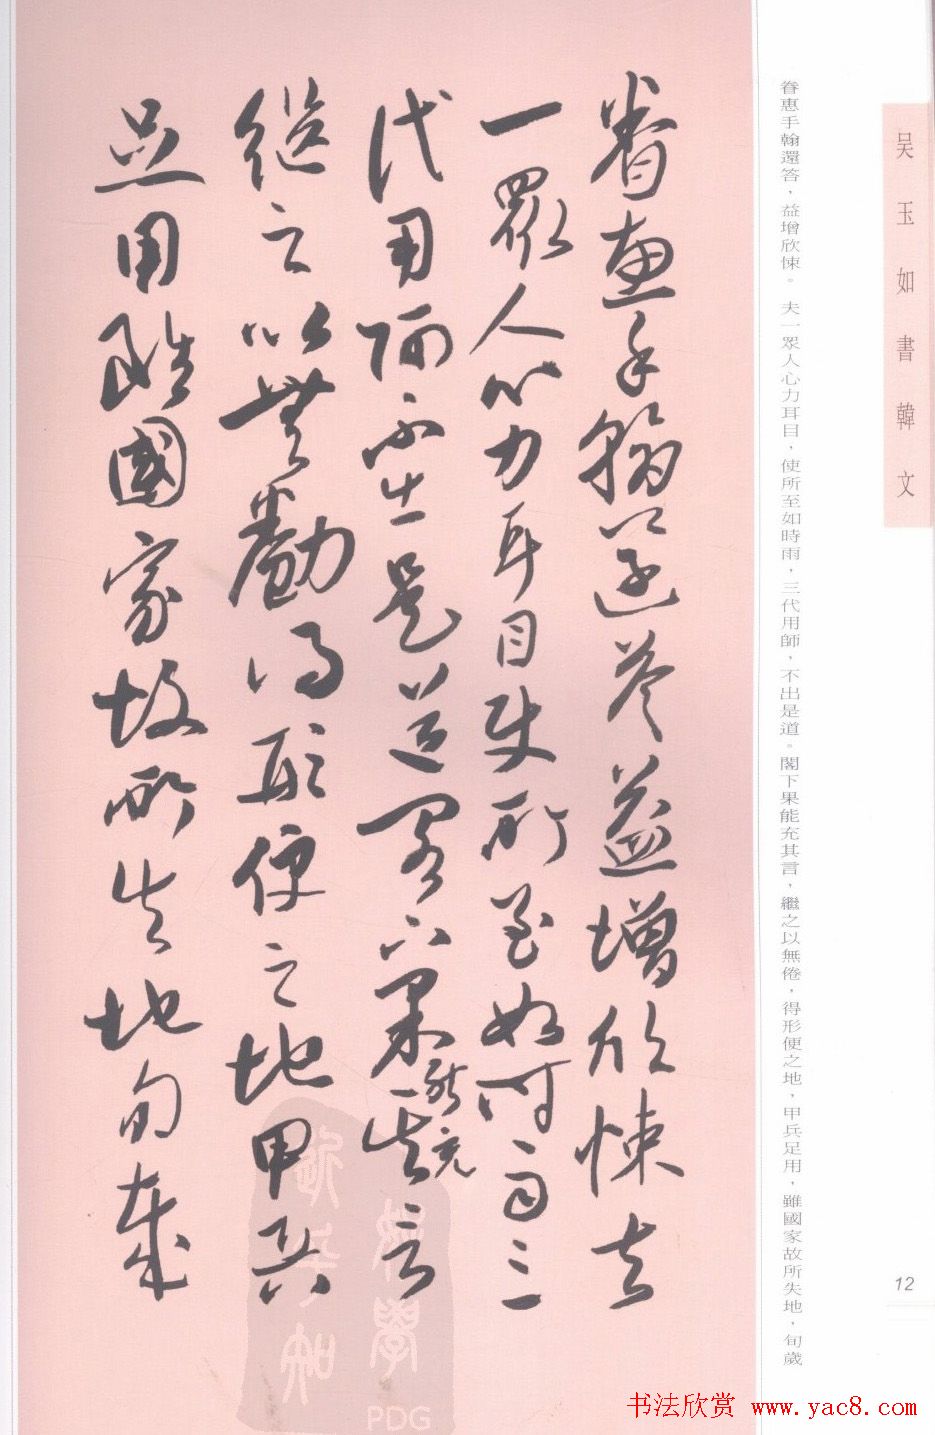 吴玉如書韓文
12
眷惠手翰還答，益增欣悚。夫一眾人心力耳目，使所至如時雨，三代用師，不出是道。閣下果能充其言，繼之以無倦，得形便之地，甲兵足用，雖國家故所失地，旬歲
眷惠手翰還答益增欣悚夫
一眾人心力耳目使所至如時雨三
代用師不出是道閣下果能充其言
繼之以無勌得形便之地甲兵
足用雖國家故所失地旬歲
PDG
书法欣赏 www.yac8.com